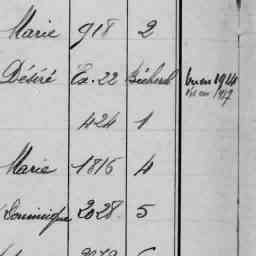 Marie 918 2
Désiré Ex. 22 Bécherel vu en 1914
1917
424 1
Marie 1816 4
Dominique 2028 5